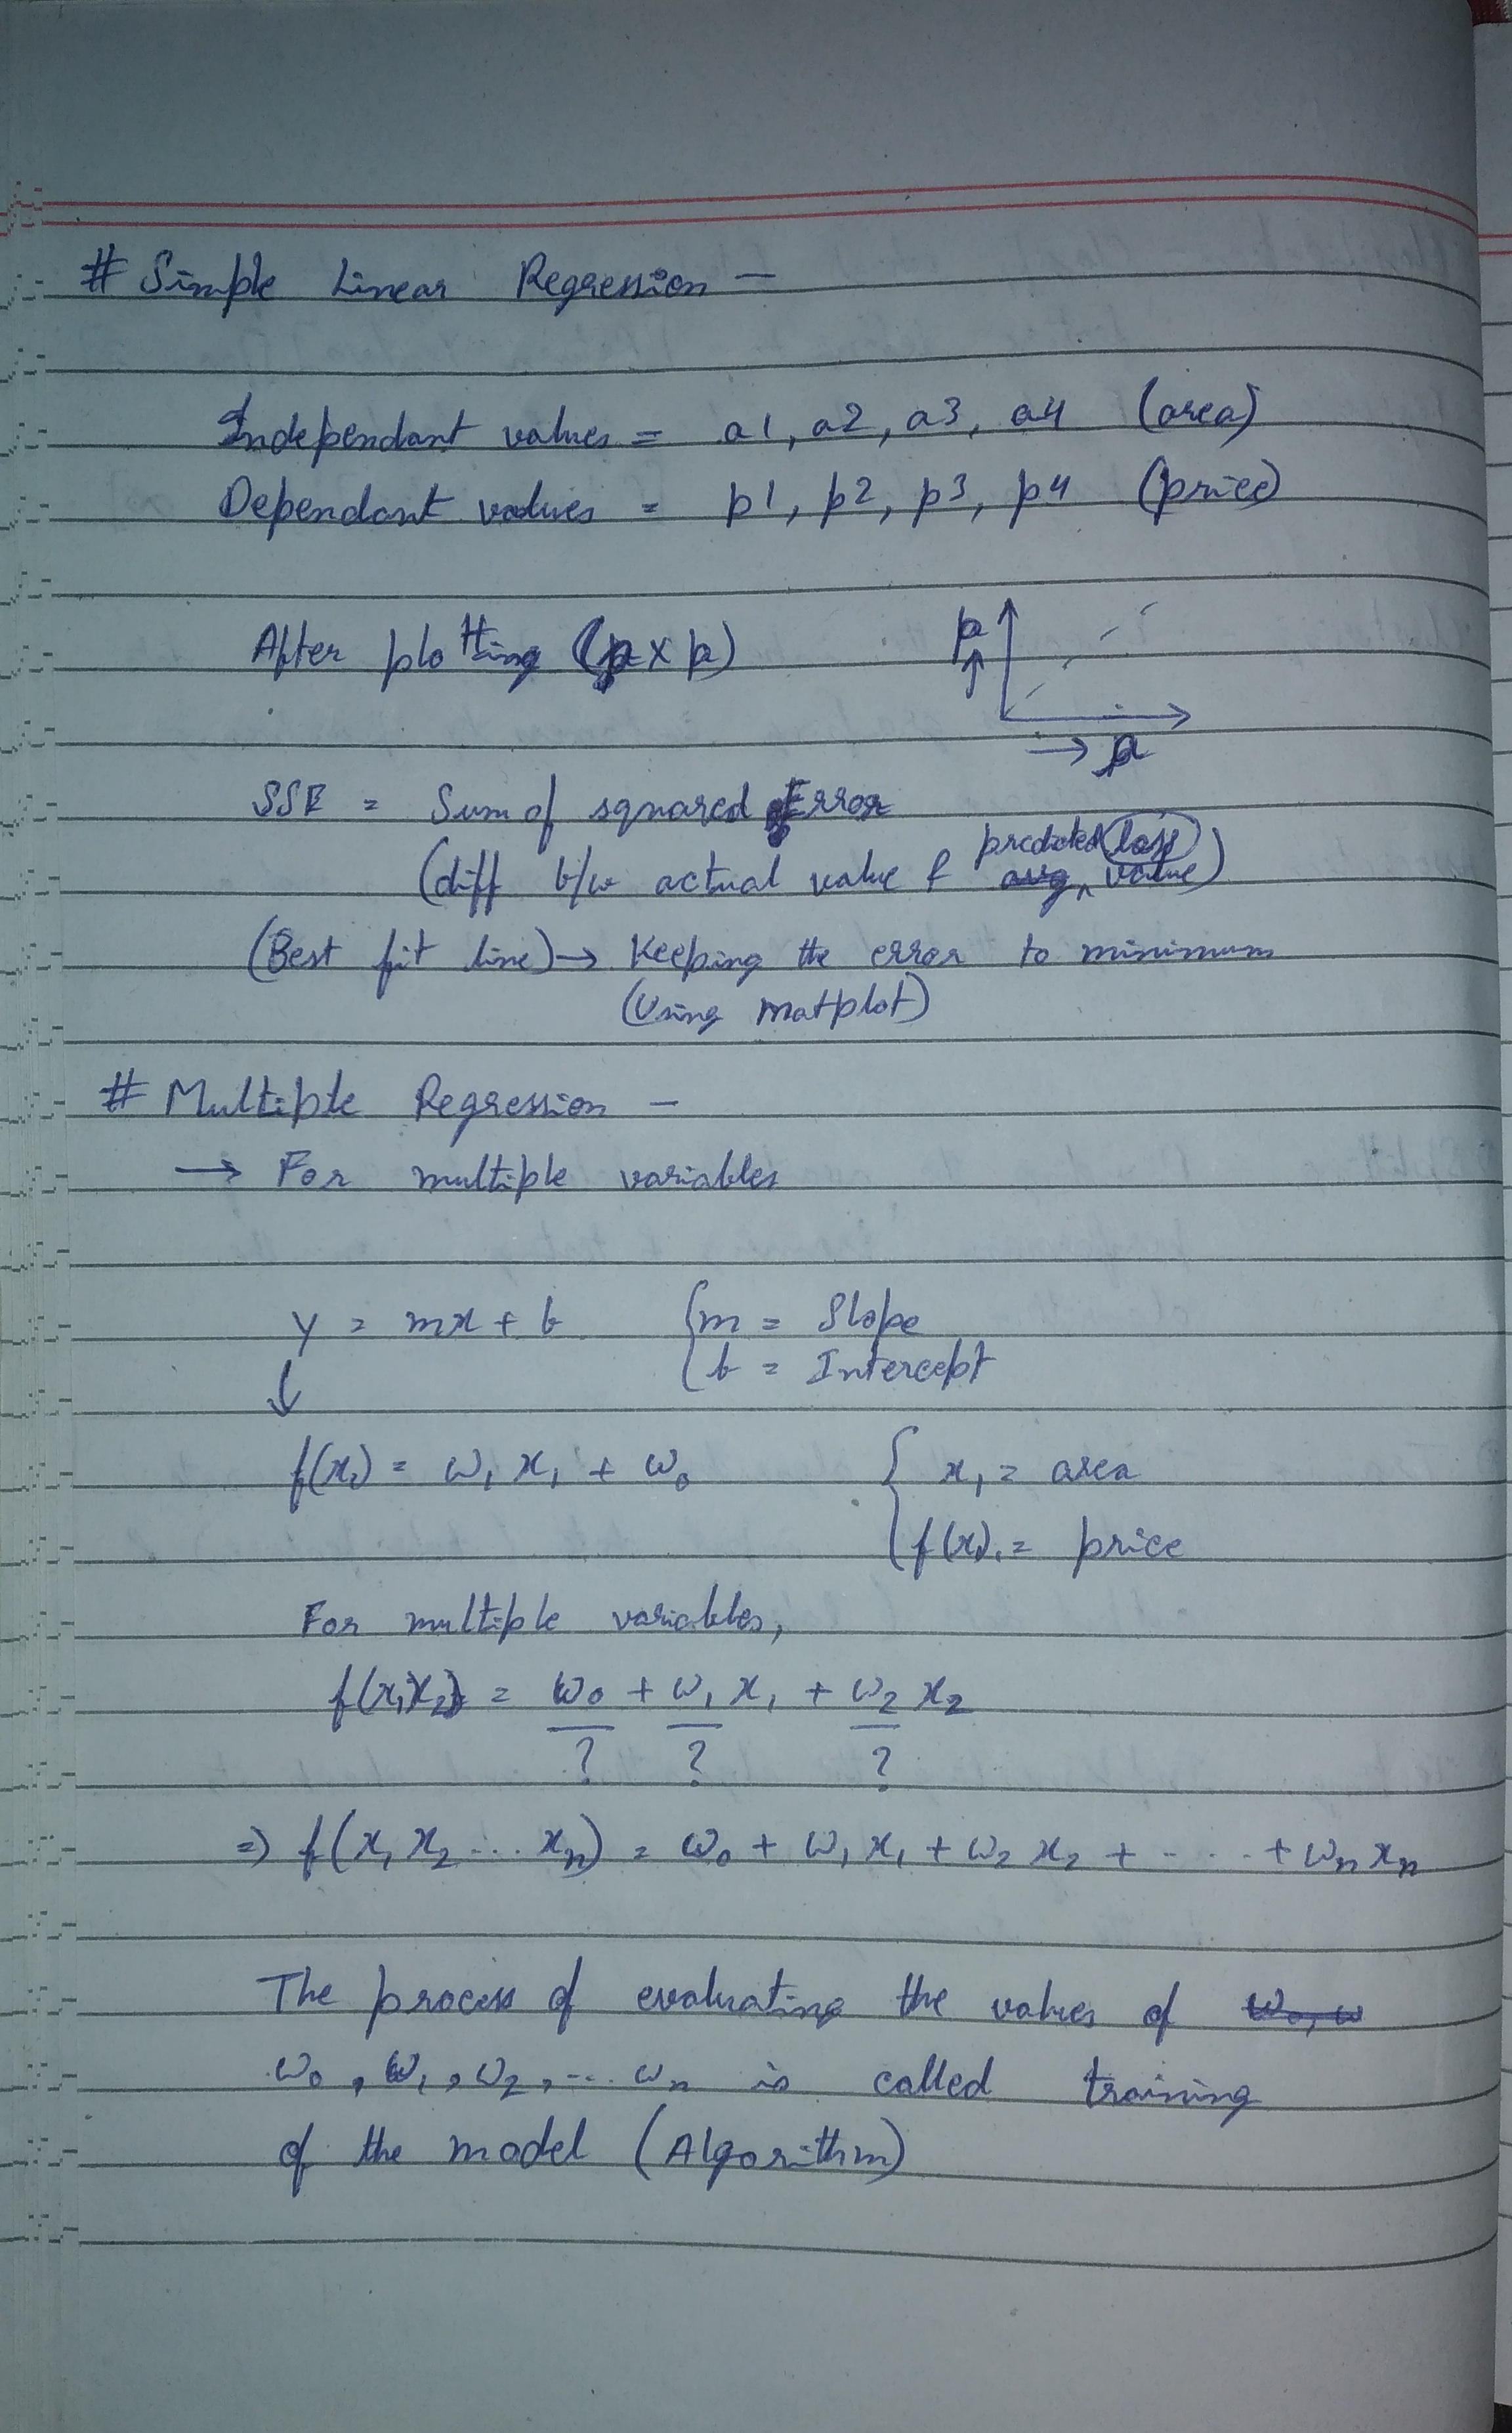 # Simple Linear Regression —
Independant values = a1, a2, a3, a4 (area)
Dependant values = p1, p2, p3, p4 (price)
After plotting
SSE = Sum of squared Error
predicted loss
(diff b/w actual value & avg value)
(Best fit line) → Keeping the error to minimum
(Using matplot)
# Multiple Regression —
→ For multiple variables
y = mx + b { m = Slope
↓ { b = Intercept
f(x₁) = ω₁ x₁ + ω₀ { x₁ = area
{ f(x)₁ = price
For multiple variables,
f(x₁x₂) = ω₀ + ω₁ x₁ + ω₂ x₂
? ? ?
⇒ f(x₁ x₂ ... xₙ) = ω₀ + ω₁ x₁ + ω₂ x₂ + ---- + ωₙ xₙ
The process of evaluating the values of ω₀, ω
ω₀, ω₁, ω₂, ... ωₙ is called training
of the model (Algorithm)